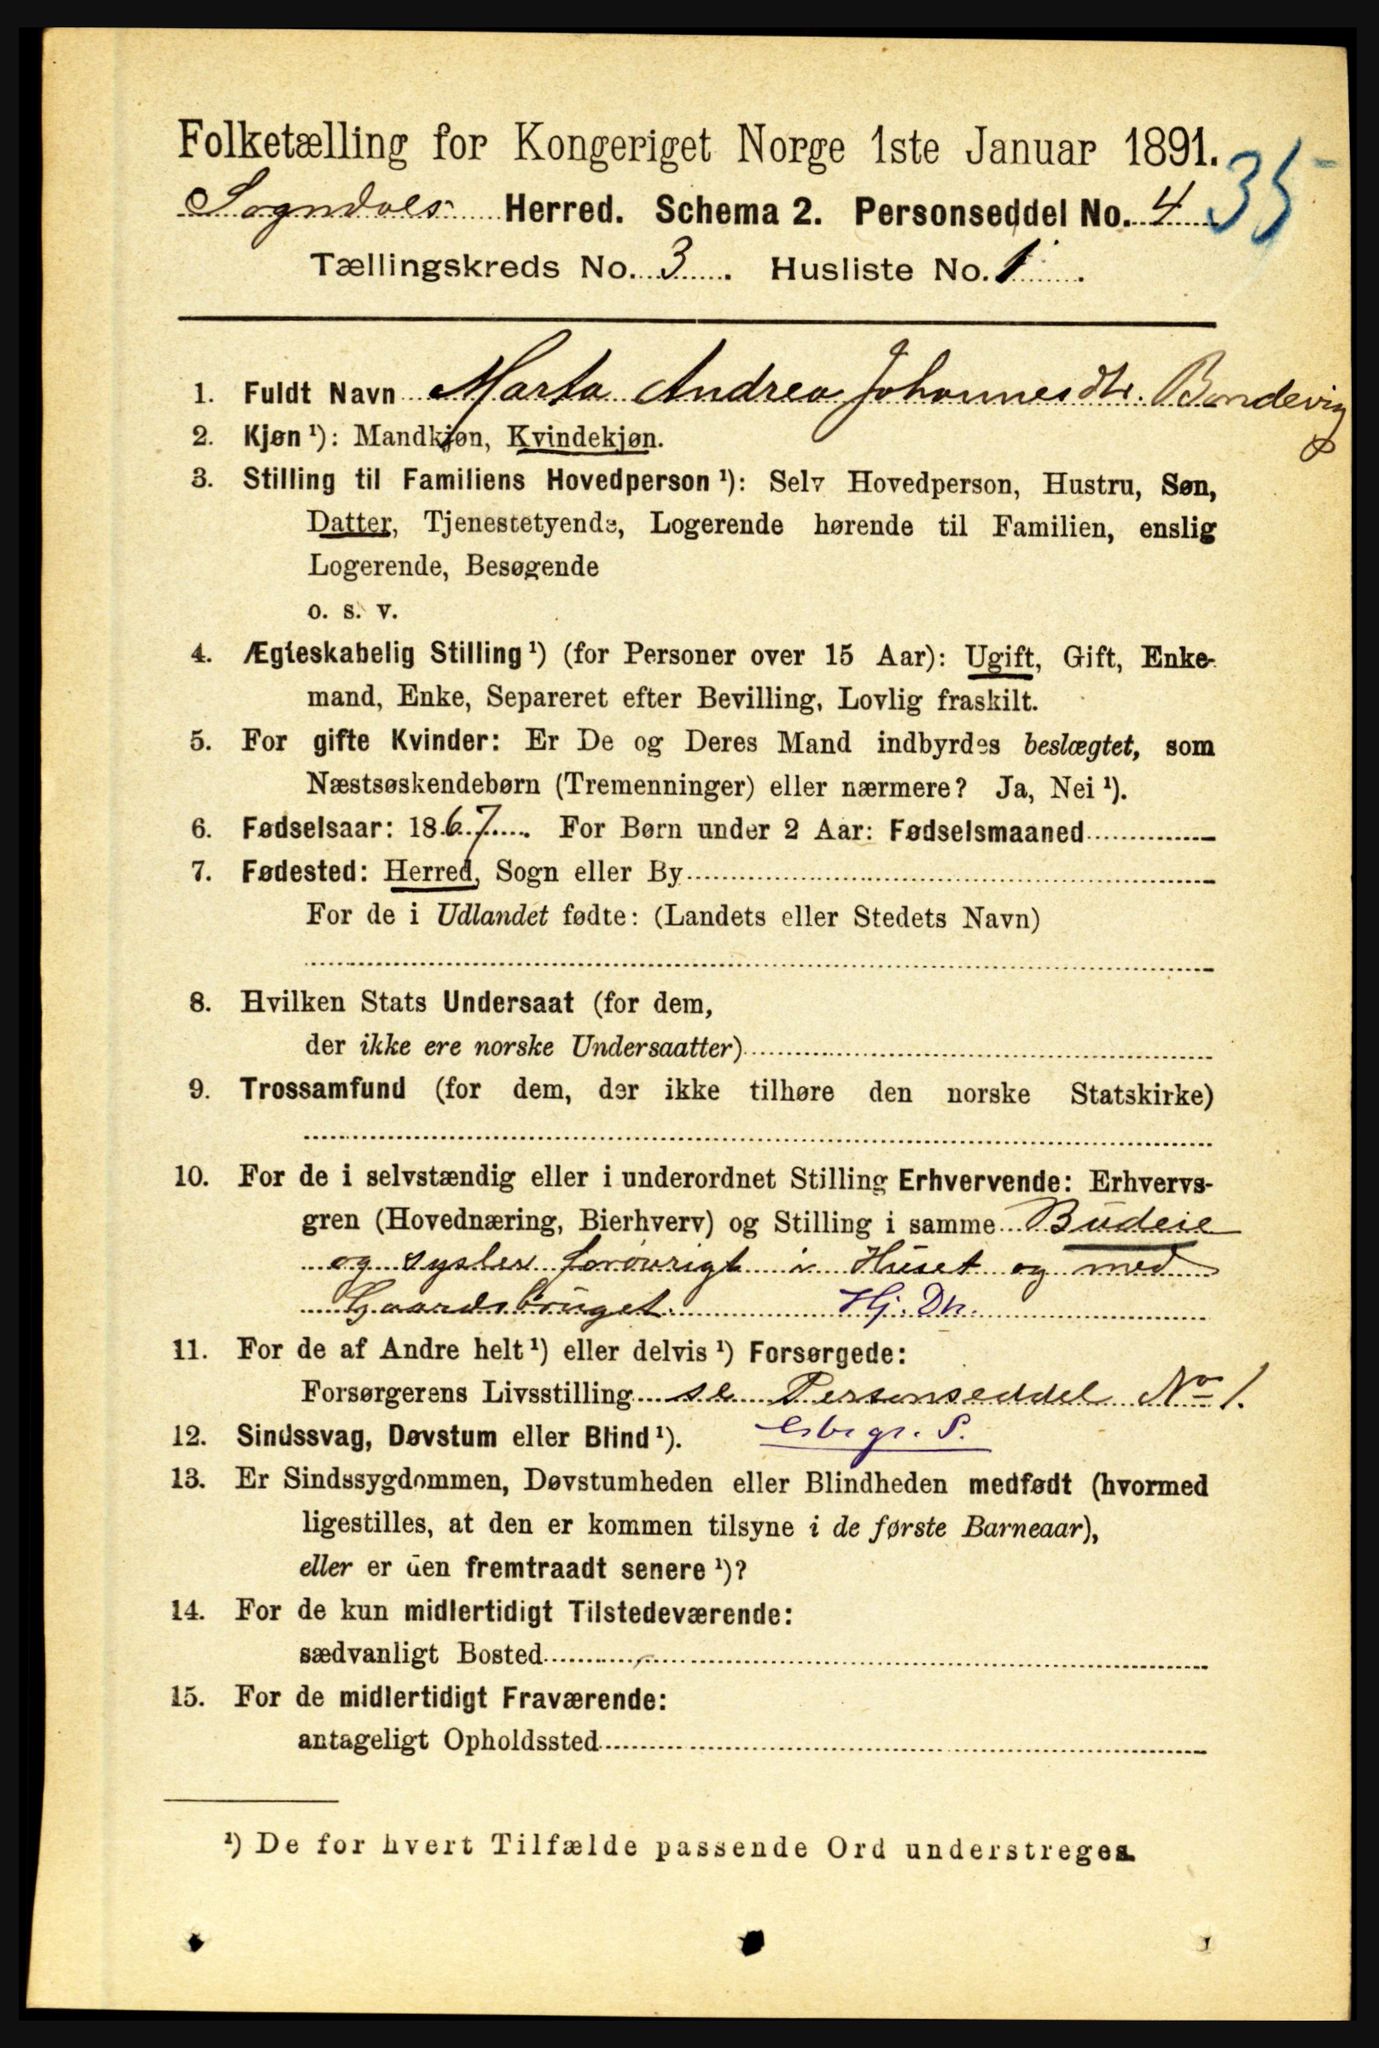 Folketælling for Kongeriget Norge 1ste Januar 1891.
Sogndals Herred. Schema 2. Personseddel No. 4 35
Tællingskreds No. 3. Husliste No. 1.
1. Fuldt Navn Marta Andrea Johannesdtr. Bondevig
2. Kjøn ¹): Mandkjøn, Kvindekjøn.
3. Stilling til Familiens Hovedperson ¹): Selv Hovedperson, Hustru, Søn,
Datter, Tjenestetyende, Logerende hørende til Familien, enslig
Logerende, Besøgende
o. s. v.
4. Ægteskabelig Stilling ¹) (for Personer over 15 Aar): Ugift, Gift, Enke-
mand, Enke, Separeret efter Bevilling, Lovlig fraskilt.
5. For gifte Kvinder: Er De og Deres Mand indbyrdes beslægtet, som
Næstsøskendebørn (Tremenninger) eller nærmere? Ja, Nei ¹).
6. Fødselsaar: 1867. For Børn under 2 Aar: Fødselsmaaned
7. Fødested: Herred, Sogn eller By
For de i Udlandet fødte: (Landets eller Stedets Navn)
8. Hvilken Stats Undersaat (for dem,
der ikke ere norske Undersaatter)
9. Trossamfund (for dem, der ikke tilhøre den norske Statskirke)
10. For de i selvstændig eller i underordnet Stilling Erhvervende: Erhvervs-
gren (Hovednæring, Bierhverv) og Stilling i samme Budeie
og sysler forøvrigt i Huset og med
Gaardsbruget. Hj. Dtr.
11. For de af Andre helt ¹) eller delvis ¹) Forsørgede:
Forsørgerens Livsstilling se Personseddel No 1.
12. Sindssvag, Døvstum eller Blind ¹). S.
13. Er Sindssygdommen, Døvstumheden eller Blindheden medfødt (hvormed
ligestilles, at den er kommen tilsyne i de første Barneaar),
eller er den fremtraadt senere ¹)?
14. For de kun midlertidigt Tilstedeværende:
sædvanligt Bosted
15. For de midlertidigt Fraværende:
antageligt Opholdssted
¹) De for hvert Tilfælde passende Ord understreges.